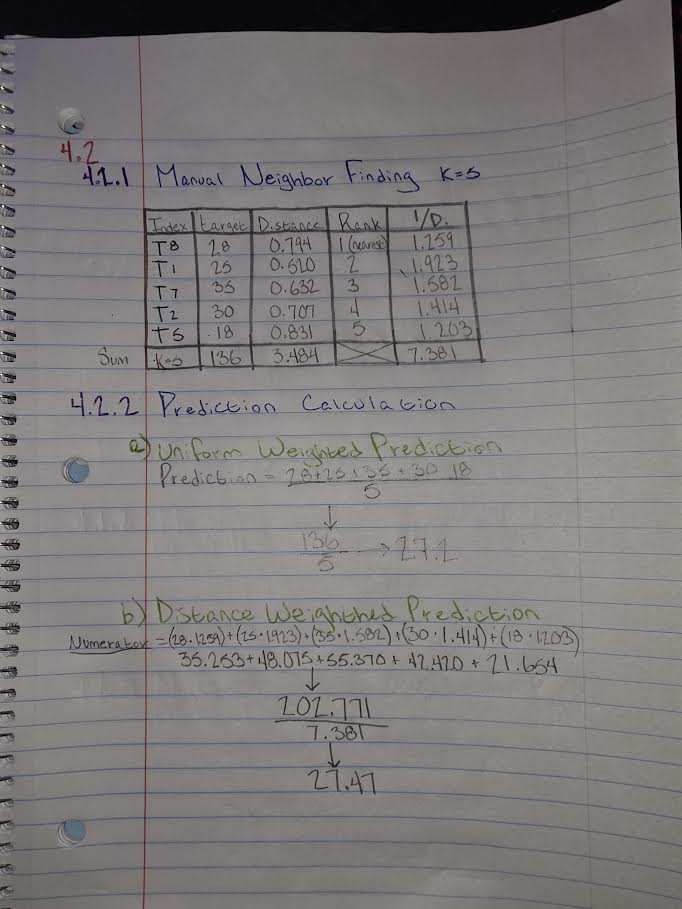 4.2
4.2.1 Manual Neighbor Finding K=5
Index target Distance Rank 1/D.
T8 28 0.794 1 (nearest) 1.259
T1 25 0.520 2 1.923
T7 35 0.632 3 1.582
T2 30 0.707 4 1.414
T5 18 0.831 5 1.203
Sum K=5 136 3.484 7.381
4.2.2 Prediction Calculation
a) Uniform Weighted Prediction
Prediction = 28+25+35+30 18
5
136
5 → 27.2
b) Distance Weighthed Prediction
Numerator = (28·1259)+(25·1923)+(35·1.582)+(30·1.414)+(18·1203)
35.253+48.075+55.370+42.420+21.654
202.771
7.381
27.47